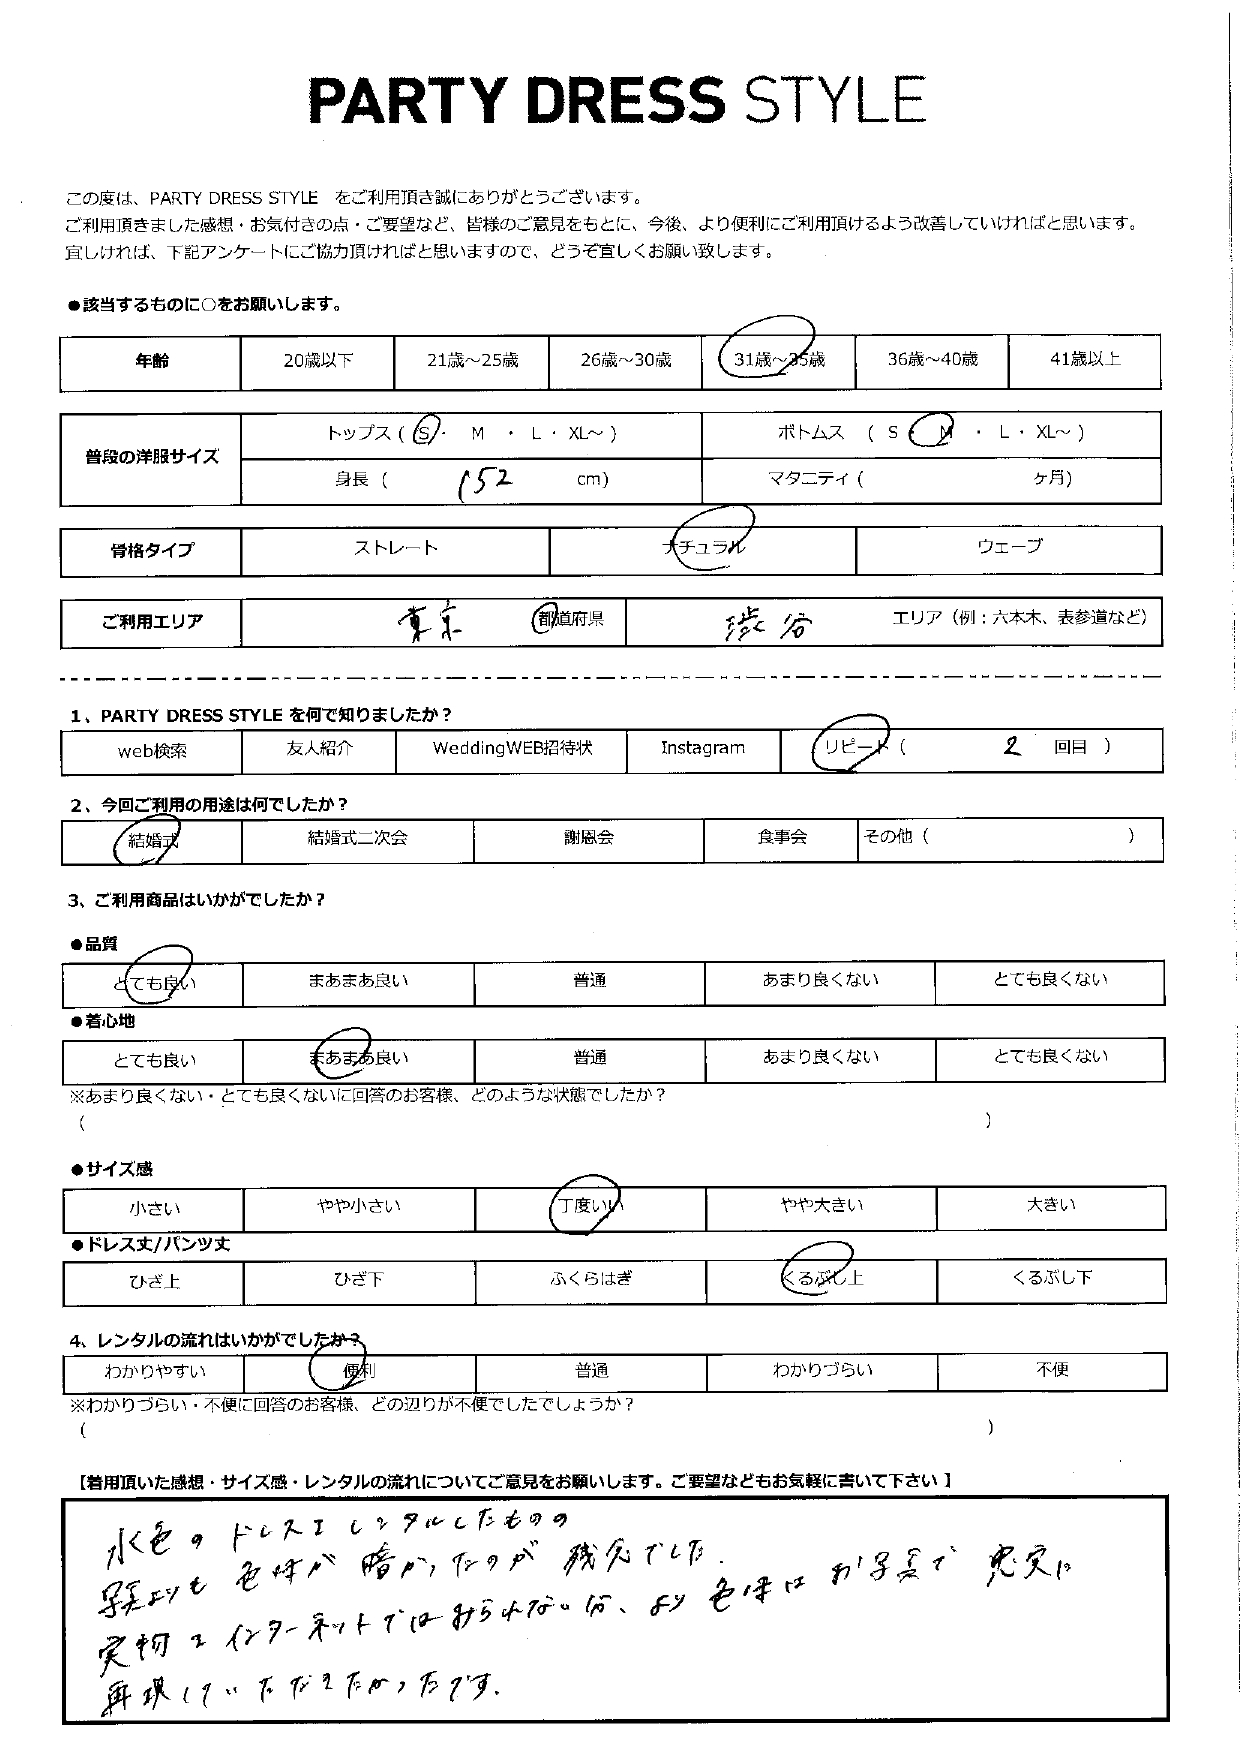 PARTY DRESS STYLE
この度は、PARTY DRESS STYLE をご利用頂き誠にありがとうございます。
ご利用頂きました感想・お気付きの点・ご要望など、皆様のご意見をもとに、今後、より便利にご利用頂けるよう改善していければと思います。
宜しければ、下記アンケートにご協力頂ければと思いますので、どうぞ宜しくお願い致します。
●該当するものに○をお願いします。
年齢 20歳以下 21歳～25歳 26歳～30歳 31歳～35歳 36歳～40歳 41歳以上
普段の洋服サイズ トップス ( S ・ M ・ L ・ XL～ ) ボトムス ( S ・ M ・ L ・ XL～ )
身長 ( 152 cm) マタニティ ( ヶ月)
骨格タイプ ストレート ナチュラル ウェーブ
ご利用エリア 東京 都道府県 渋谷 エリア（例：六本木、表参道など）
1、PARTY DRESS STYLE を何で知りましたか？
web検索 友人紹介 WeddingWEB招待状 Instagram リピート ( 2 回目 )
2、今回ご利用の用途は何でしたか？
結婚式 結婚式二次会 謝恩会 食事会 その他 ( )
3、ご利用商品はいかがでしたか？
●品質
とても良い まあまあ良い 普通 あまり良くない とても良くない
●着心地
とても良い まあまあ良い 普通 あまり良くない とても良くない
※あまり良くない・とても良くないに回答のお客様、どのような状態でしたか？
( )
●サイズ感
小さい やや小さい 丁度いい やや大きい 大きい
●ドレス丈/パンツ丈
ひざ上 ひざ下 ふくらはぎ くるぶし上 くるぶし下
4、レンタルの流れはいかがでしたか？
わかりやすい 便利 普通 わかりづらい 不便
※わかりづらい・不便に回答のお客様、どの辺りが不便でしたでしょうか？
( )
【着用頂いた感想・サイズ感・レンタルの流れについてご意見をお願いします。ご要望などもお気軽に書いて下さい】
水色のドレスをレンタルしたものの
写真よりも色味が暗かったのが残念でした.
実物をインターネットではみられない分、より色味はお写真で忠実に
再現していただきたかったです.